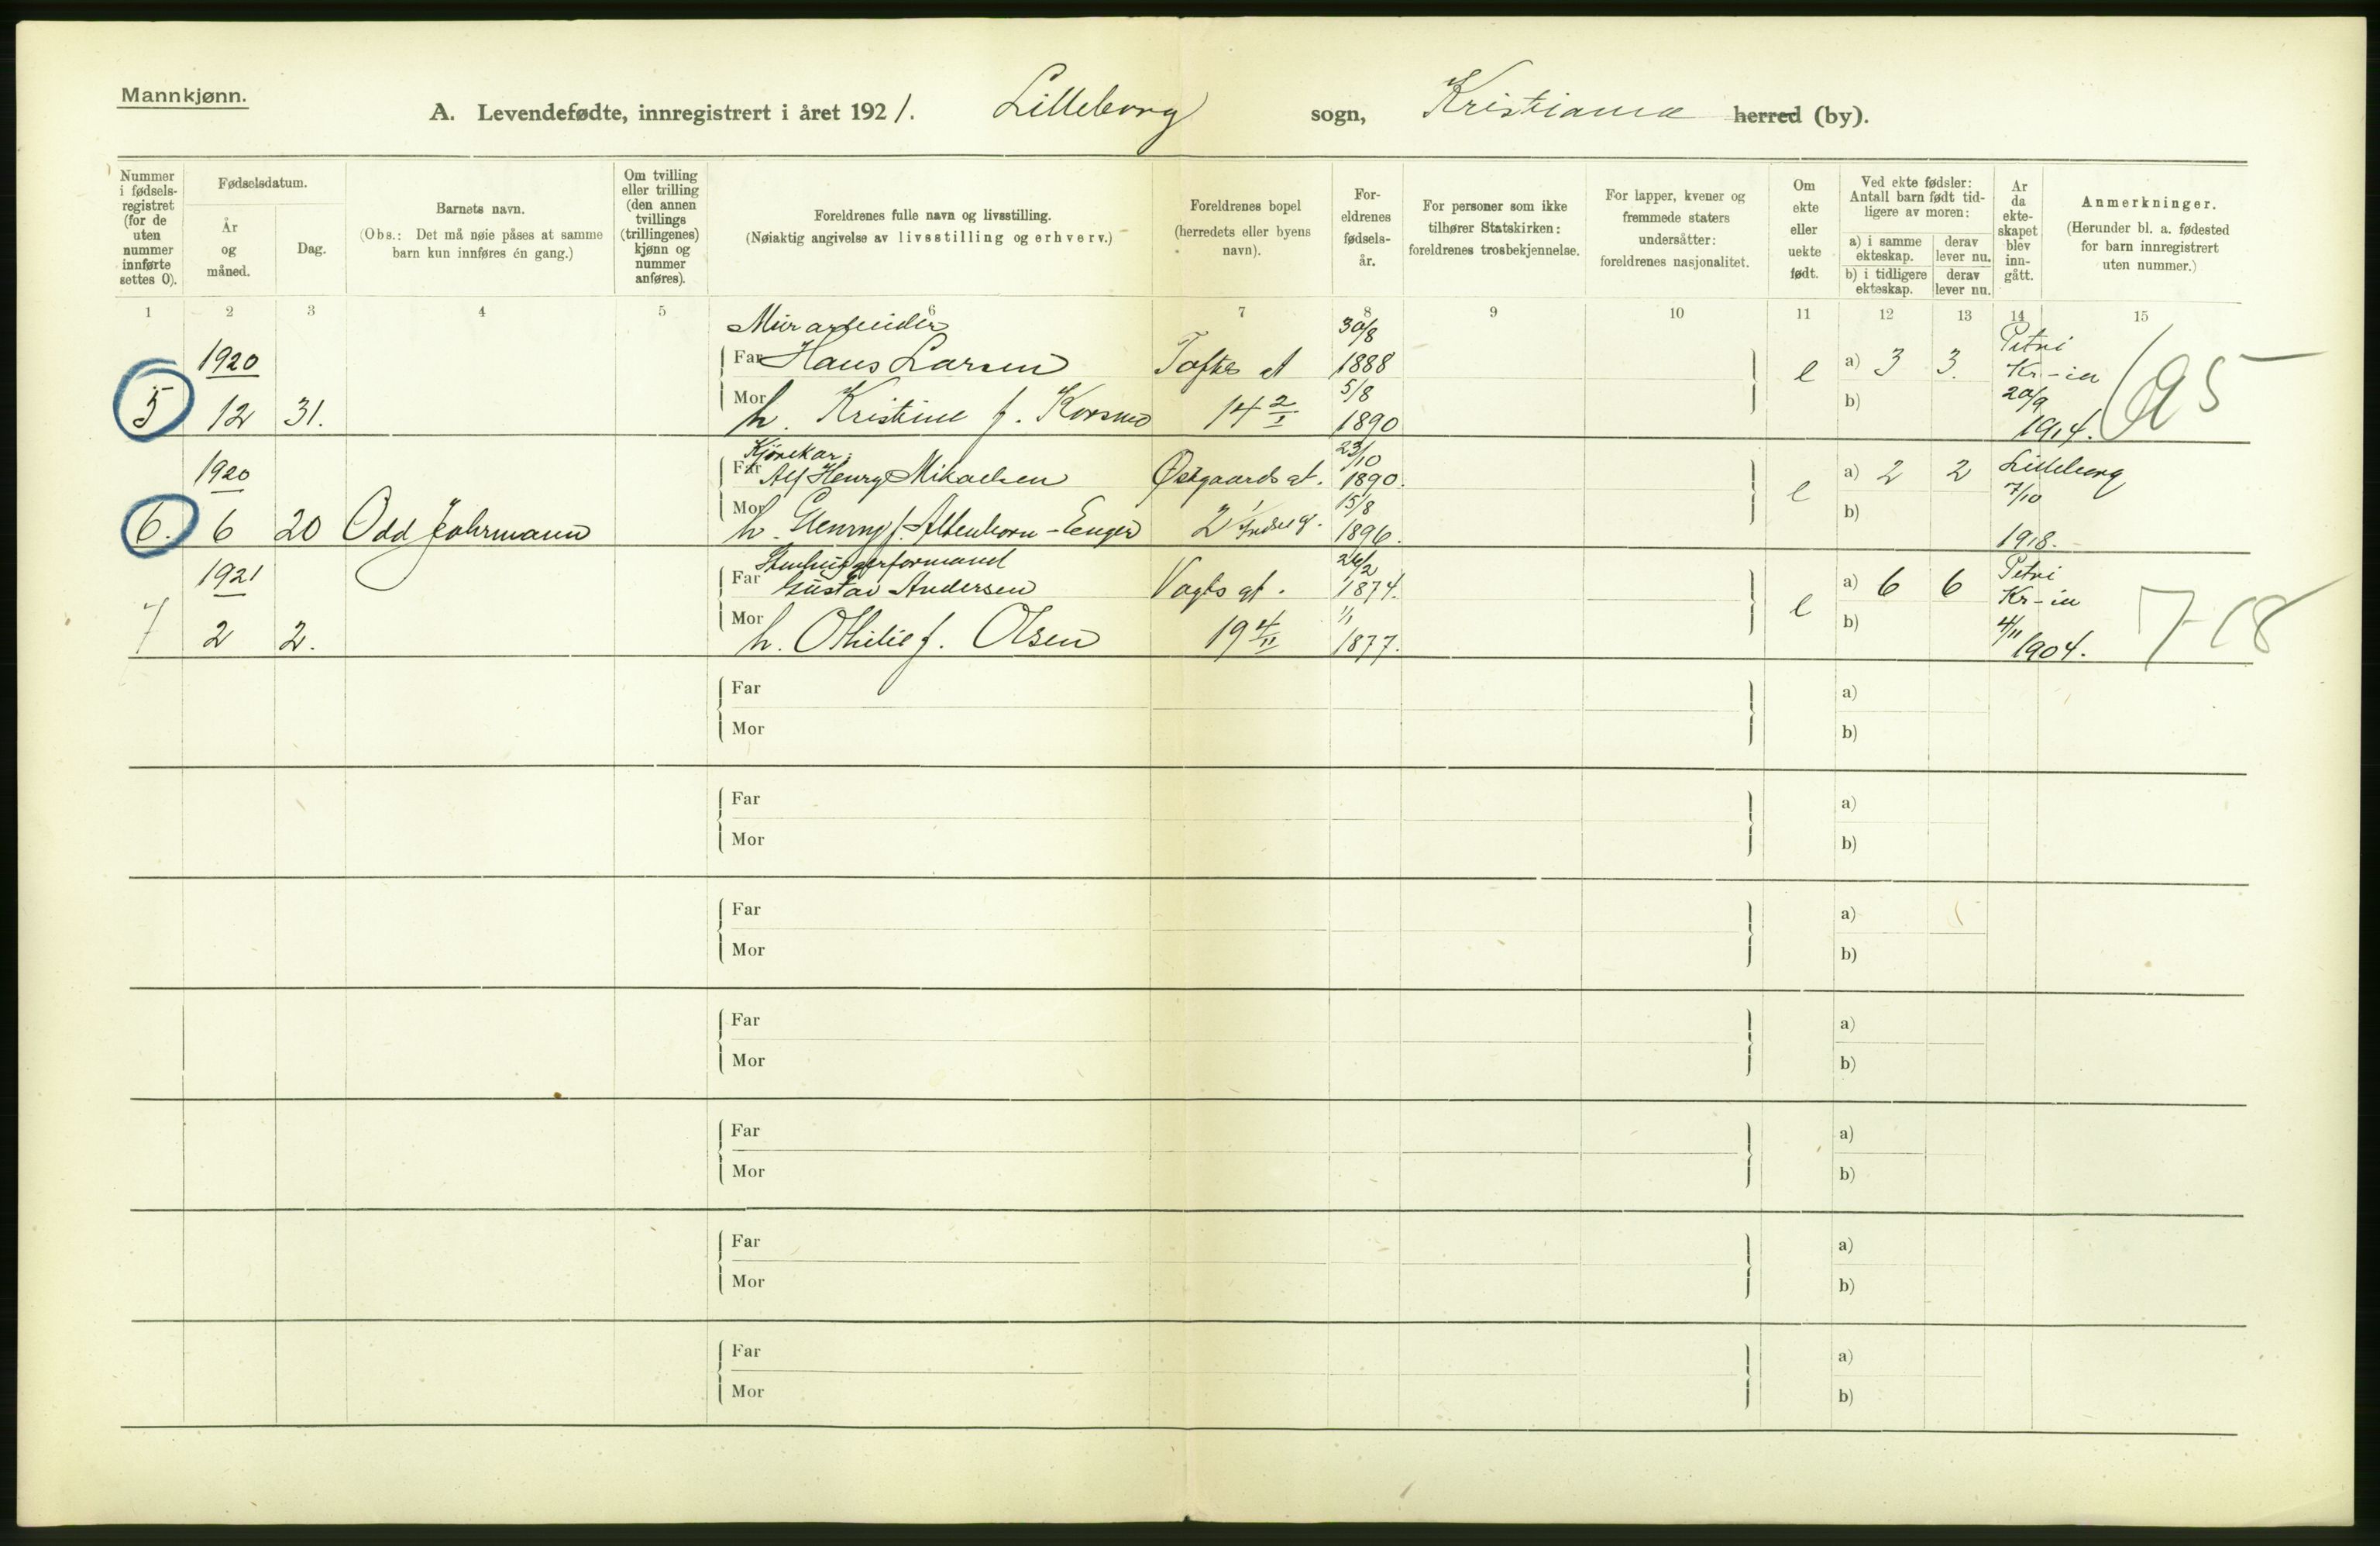 Mannkjønn.
A. Levendefødte, innregistrert i året 1921. Lilleborg sogn, Kristiania herred (by).
Nummer i fødsels-registret (for de uten nummer innførte settes 0).
Fødselsdatum.
År og måned.
Dag.
Barnets navn.
(Obs.: Det må nøie påses at samme barn kun innføres én gang.)
Om tvilling eller trilling (den annen tvillings (trillingenes) kjønn og nummer anføres).
Foreldrenes fulle navn og livsstilling.
(Nøiaktig angivelse av livsstilling og erhverv.)
Foreldrenes bopel (herredets eller byens navn).
For-eldrenes fødsels-år.
For personer som ikke tilhører Statskirken: foreldrenes trosbekjennelse.
For lapper, kvener og fremmede staters undersåtter: foreldrenes nasjonalitet.
Om ekte eller uekte født.
Ved ekte fødsler: Antall barn født tid-ligere av moren:
a) i samme ekteskap.
derav lever nu.
b) i tidligere ekteskap.
derav lever nu.
År da ekte-skapet blev inn-gått.
Anmerkninger.
(Herunder bl. a. fødested for barn innregistrert uten nummer.)
1 2 3 4 5 6 7 8 9 10 11 12 13 14 15
Murarbeider 30/8 Petri
1920 Far Hans Larsen Toftes gt 1888 e a) 3 3. Kr-ia 95
5 12 31. Mor h. Kristine f. Korsmo 14 2/I 5/8 1890 b) 20/9 1914.
Kjørekar. 23/10
1920 Far Alf Henry Mikaelsen Østgaards gt. 1890. e a) 2 2 Lilleborg
6. 6 20 Odd Fohrmann Mor h. f. Altenborn-Enger 2 15/8 1896. b) 7/10 1918.
Stenhuggerformand 26/2 Petri
1921 Far Gustav Andersen Vogts gt. 1874. e a) 6 6 Kr-ia 7-18
7 2 2. Mor h. Othilie f. Olsen 19 4/II 1/1 1877. b) 4/11 1904.
Far a)
Mor b)
Far a)
Mor b)
Far a)
Mor b)
Far a)
Mor b)
Far a)
Mor b)
Far a)
Mor b)
Far a)
Mor b)